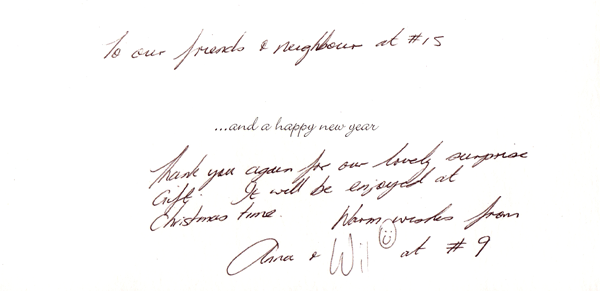 To our friends & neighbour at #15
...and a happy new year
Thank you again for our lovely surprise
Gift. It will be enjoyed at
Christmas time. Warm wishes from
Anna & Wil at #9